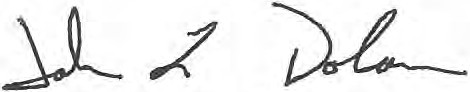 John L Dolan